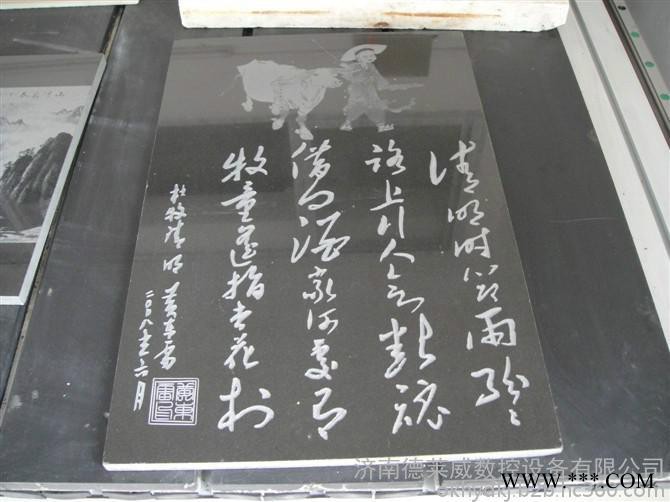 清明时节雨纷纷
路上行人欲断魂
借问酒家何处有
牧童遥指杏花村
杜牧清明 黄东雷
二〇〇八年六月
黄东雷印
济南德莱威数控设备有限公司
www.***.com